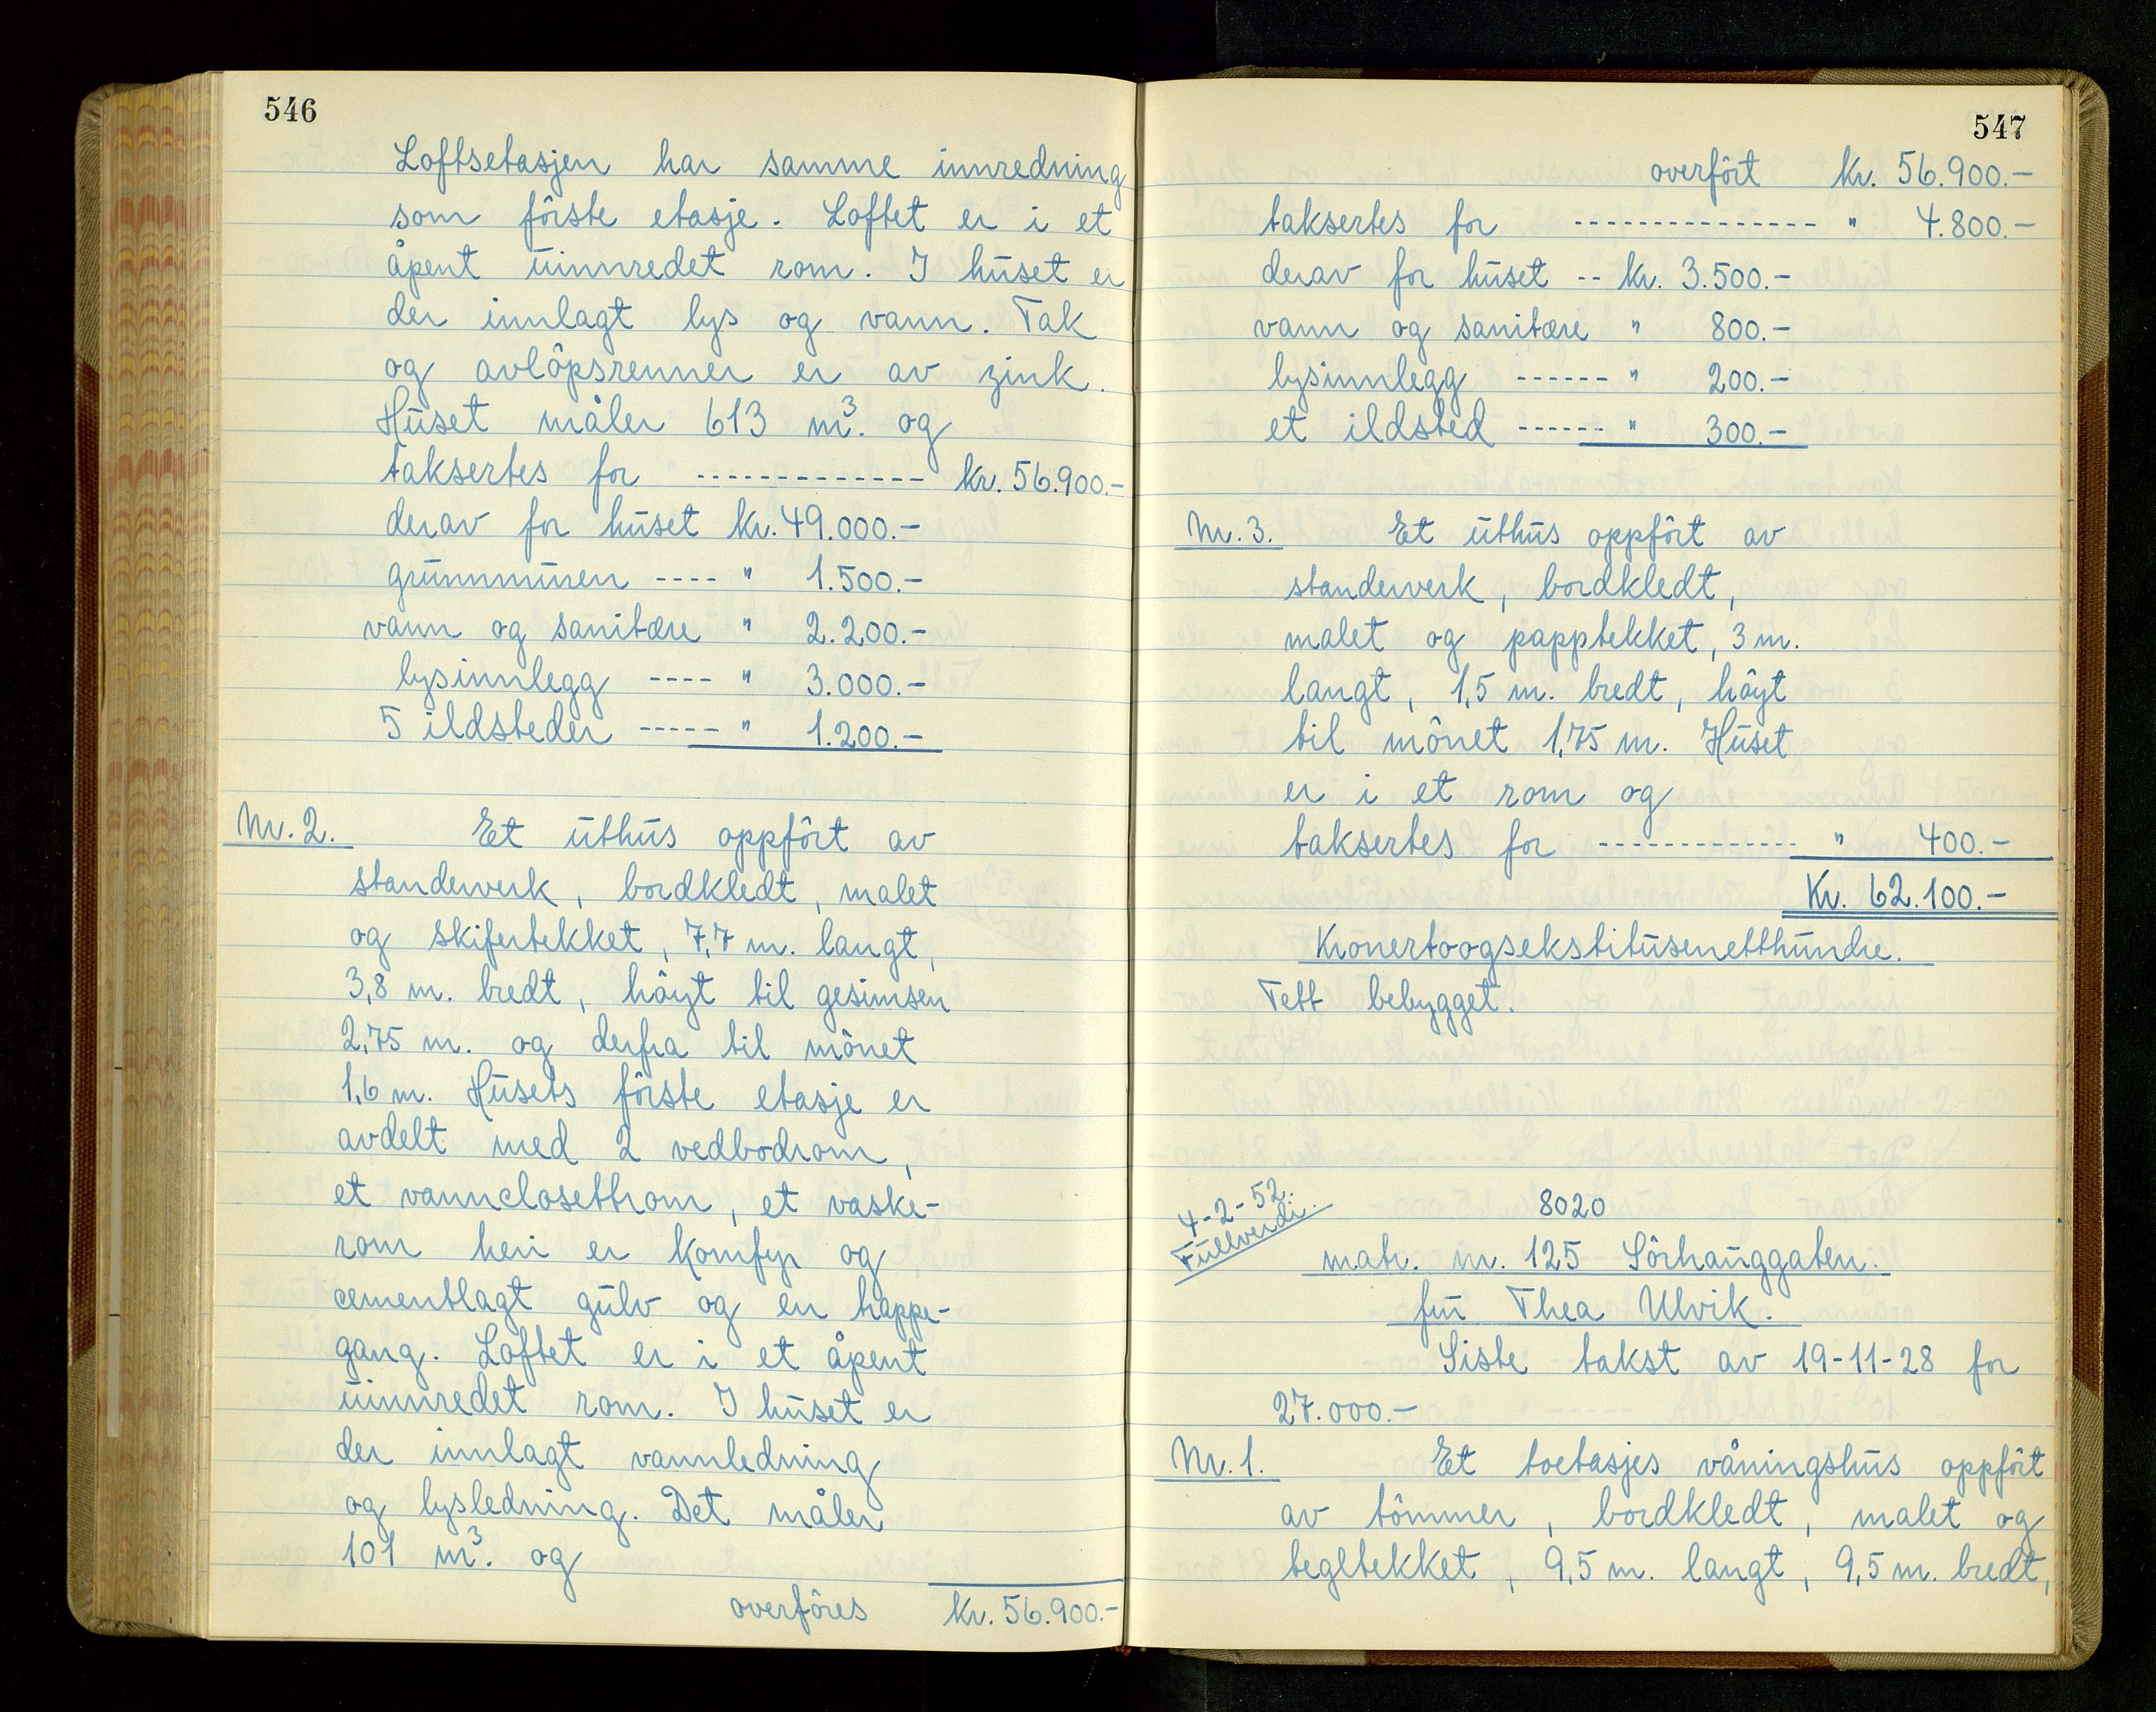 546
Loftsetasjen har samme innredning
som förste etasje. Loftet er i et
åpent uinnredet rom. I huset er
der innlagt lys og vann. Tak
og avlöpsrenner er av zink.
Huset måler 613 m³. og
taksertes for ------------- kr. 56.900.-
derav for huset kr. 49.000.-
grunnmuren ---- " 1.500.-
vann og sanitære " 2.200.-
lysinnlegg ---- " 3.000.-
5 ildsteder ----- " 1.200.-
Nr. 2. Et uthus oppfört av
standerverk, bordkledt, malet
og skifertekket, 7,7 m. langt,
3,8 m. bredt, höyt til gesimsen
2,75 m. og derfra til mönet
1,6 m. Husets förste etasje er
avdelt med 2 vedbodrom,
et vannclosettrom, et vaske-
rom heri er komfyr og
cementlagt gulv og en trappe-
gang. Loftet er i et åpent
uinnredet rom. I huset er
der innlagt vannledning
og lysledning. Det måler
101 m³. og
overföres kr. 56.900.-
547
overfört kr. 56.900.-
taksertes for --------------- " 4.800.-
derav for huset -- kr. 3.500.-
vann og sanitære " 800.-
lysinnlegg ------ " 200.-
et ildsted ------ " 300.-
Nr. 3. Et uthus oppfört av
standerverk, bordkledt,
malet og papptekket, 3 m.
langt, 1,5 m. bredt, höyt
til mönet 1,75 m. Huset
er i et rom og
taksertes for ------------- " 400.-
Kr. 62.100.-
Kronertoogsekstitusenetthundre.
Tett bebygget.
4-2-52.
Fullverdi.
8020
matr. nr. 125 Sörhauggaten.
fru Thea Ulvik.
Siste takst av 19-11-28 for
27.000.-
Nr. 1. Et toetasjes våningshus oppfört
av tömmer, bordkledt, malet og
tegltekket, 9,5 m. langt, 9,5 m. bredt,